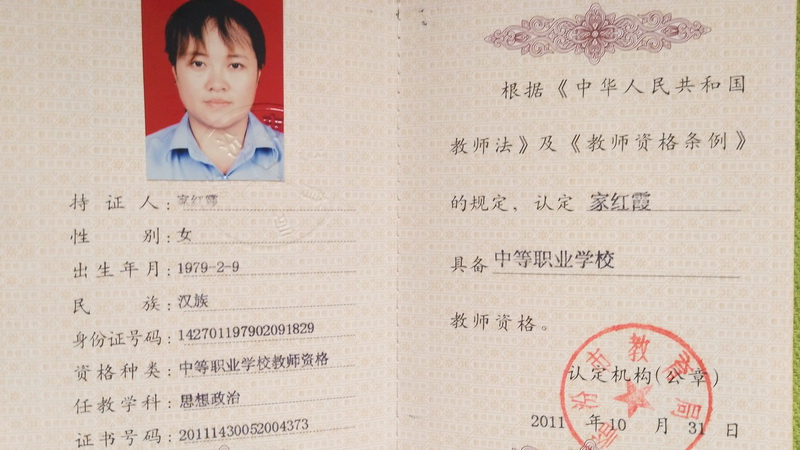 持证人：家红霞
性别：女
出生年月：1979-2-9
民族：汉族
身份证号码：142701197902091829
资格种类：中等职业学校教师资格
任教学科：思想政治
证书号码：20111430052004373
根据《中华人民共和国
教师法》及《教师资格条例》
的规定，认定 家红霞
具备 中等职业学校
教师资格。
认定机构（公章）
2011 年 10 月 31 日
市教育局